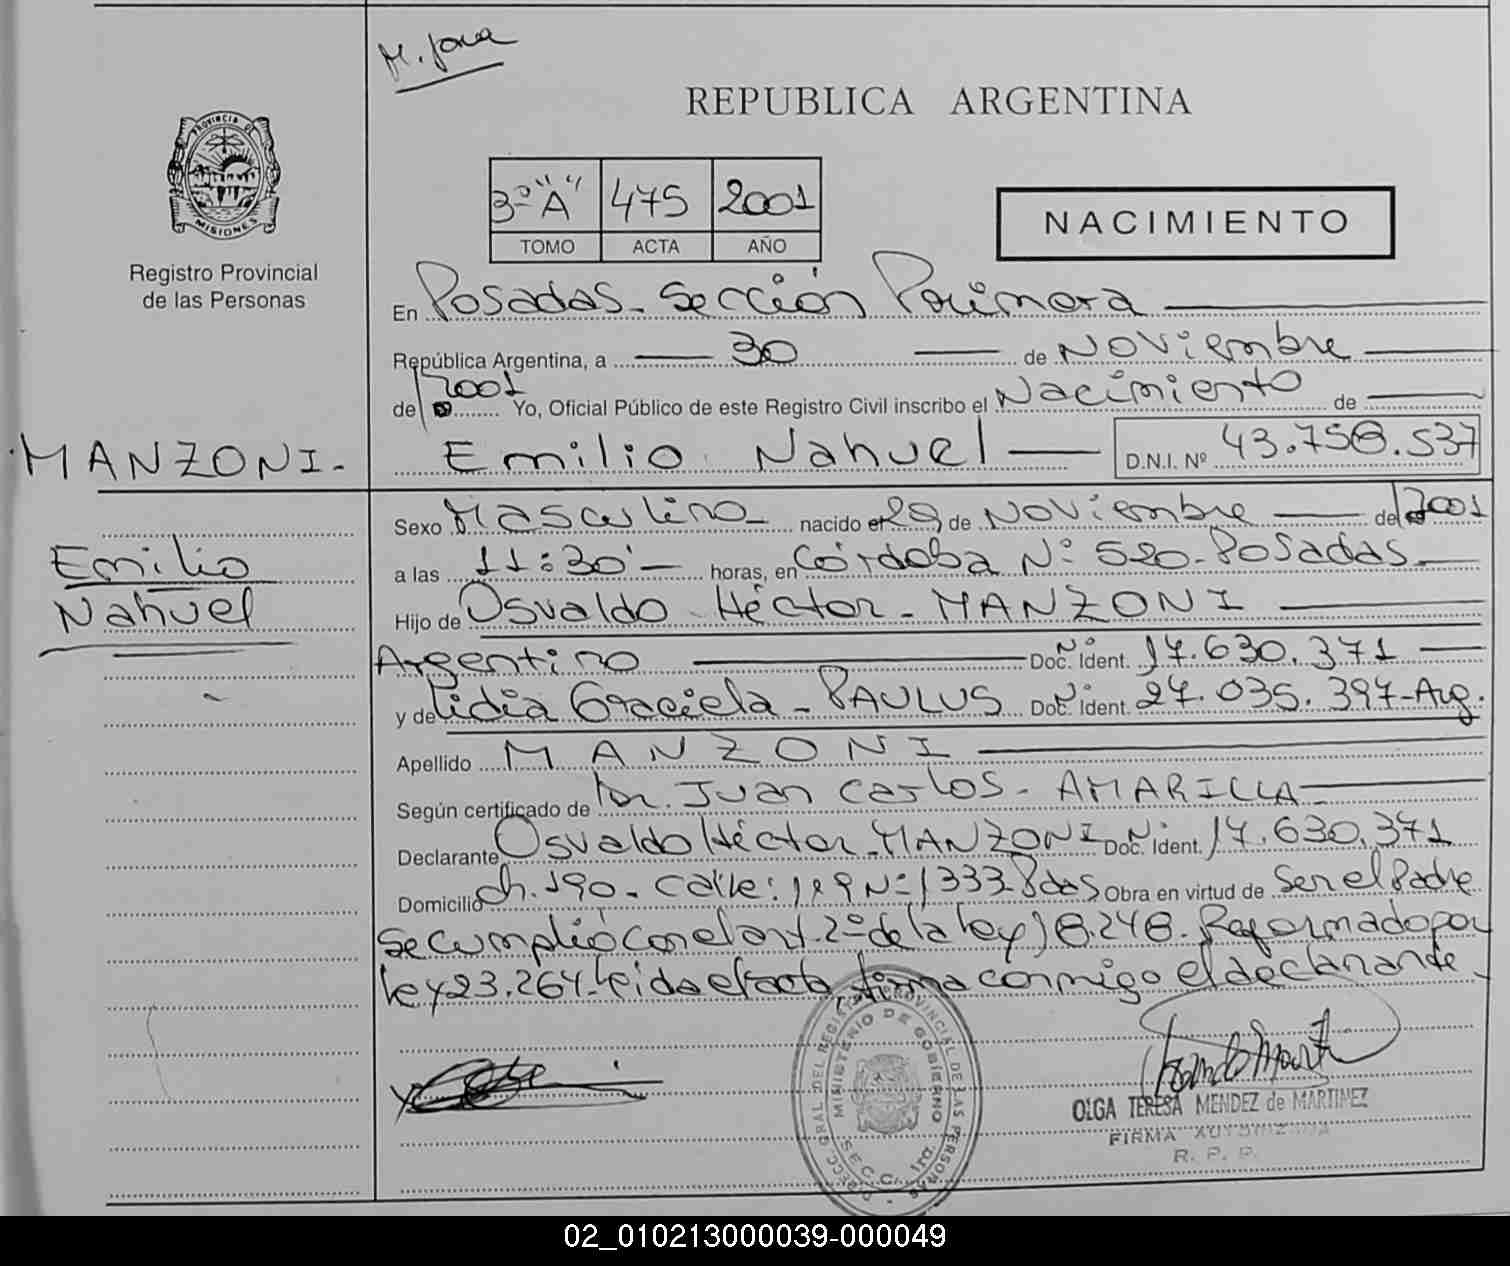 M. José
REPUBLICA ARGENTINA
PROVINCIA DE MISIONES
Registro Provincial
de las Personas
3º "A" 475 2001
TOMO ACTA AÑO
NACIMIENTO
En Posadas - Sección Primera
República Argentina, a 30 de Noviembre
de 2001 Yo, Oficial Público de este Registro Civil inscribo el Nacimiento de
MANZONI.-
Emilio Nahuel D.N.I. Nº 43.758.537
Emilio
Nahuel
Sexo Masculino - nacido el 29 de Noviembre de 2001
a las 11:30 - horas, en Córdoba Nº 520 - Posadas -
Hijo de Osvaldo Héctor - MANZONI
Argentino Doc. Ident. Nº 17.630.371
y de Lidia Graciela - PAULUS Doc. Ident. Nº 27.035.397 - Arg.
Apellido MANZONI
Según certificado de Dr. Juan Carlos - AMARILLA
Declarante Osvaldo Héctor - MANZONI Doc. Ident. Nº 17.630.371
Domicilio Ch. 190 - Calle: 119 Nº 1333 Pdas Obra en virtud de Ser el Padre
Se cumplió con el art. 2º de la ley 18.248 - Reformado por
ley 23.264 - leída el acta firma conmigo el declarante -
DIRECC. GRAL. DEL REGISTRO PROVINCIAL DE LAS PERSONAS
MINISTERIO DE GOBIERNO
SECC. 1ra.
OLGA TERESA MENDEZ de MARTINEZ
FIRMA AUTORIZADA
R. P. P.
02_010213000039-000049